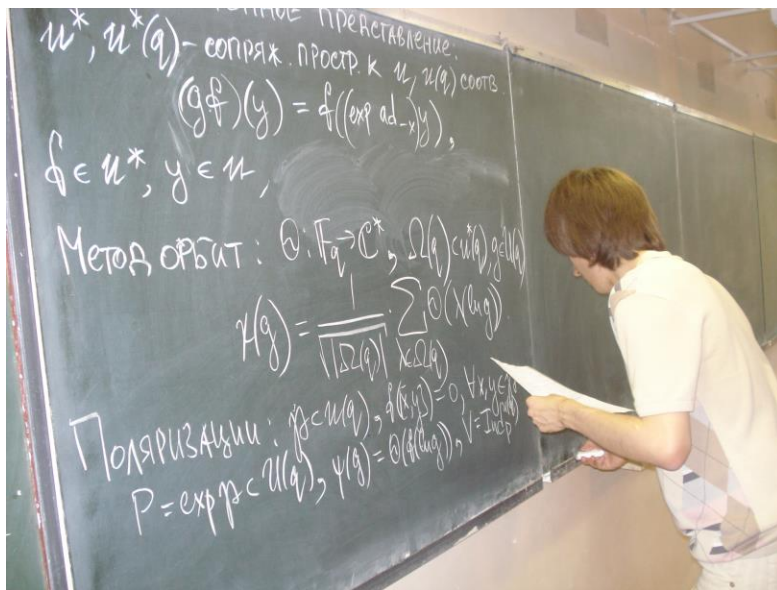 ПРЕДСТАВЛЕНИЕ:
𝔫*, 𝔫*(q) – СОПРЯЖ. ПРОСТР. К 𝔫, 𝔫(q) СООТВ.
(gf)(y) = f((exp ad₋ₓ)y),
f ∈ 𝔫*, y ∈ 𝔫,
МЕТОД ОРБИТ: Θ: 𝔽_q → ℂ*, Ω(q) ⊂ 𝔫*(q), g ∈ U(q)
χ(g) = 1/√|Ω(q)| · ∑_{λ∈Ω(q)} Θ(λ(ln g)).
ПОЛЯРИЗАЦИИ: 𝔭 ⊂ 𝔫(q), f([x,y]) = 0, ∀x,y ∈ 𝔭
P = exp 𝔭 ⊂ U(q), ψ(g) = Θ(f(ln g)), V = Ind